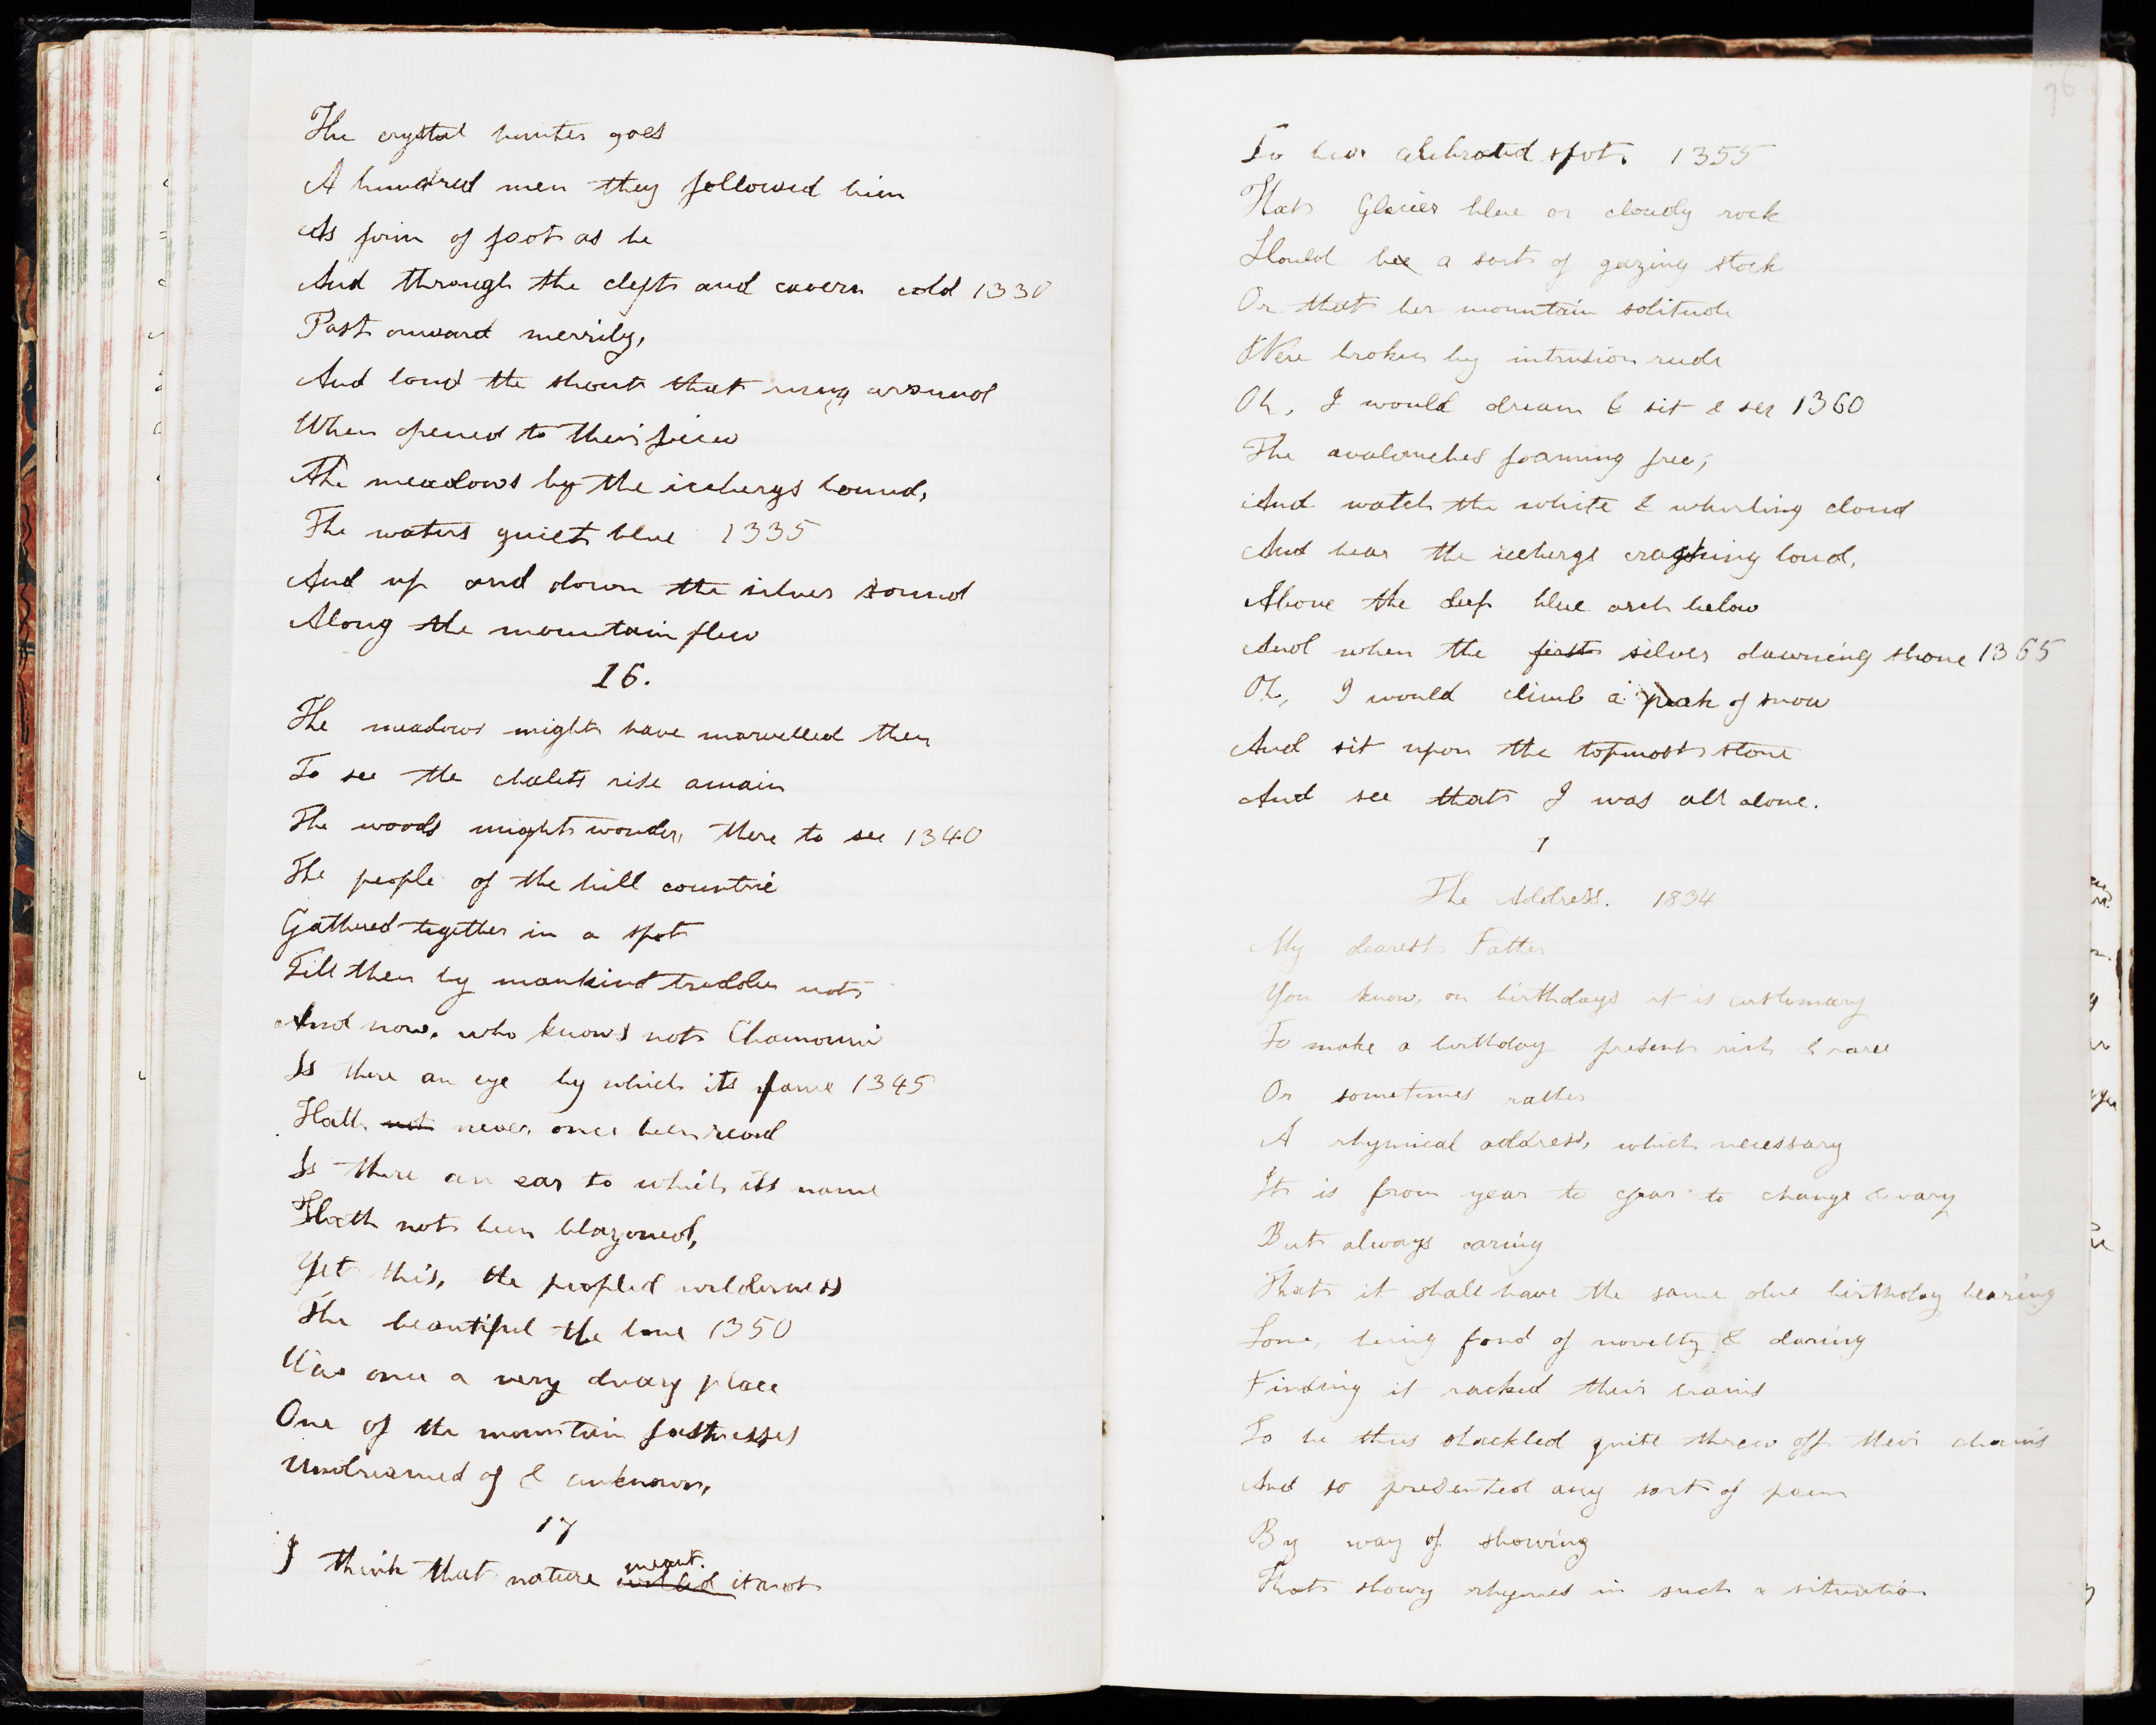 The crystal hunter goes
A hundred men they followed him
As firm of foot as he
And through the cleft and cavern cold 1330
Past onward merrily,
And loud the shout that rung around
When opened to their view
The meadows by the icebergs bound,
The waters quiet blue 1335
And up and down the silver sound
Along the mountain flew
16.
The meadows might have marvelled then
To see the chalets rise amain
The woods might wonder, there to see 1340
The people of the hill countrie
Gathered together in a spot
Till then by mankind trodden not
And now, who knows not Chamouni
Is there an eye by which its fame 1345
Hath not never once been read
Is there an ear to which its name
Hath not been blazoned,
Yet this, the peopled wilderness
The beautiful the lone 1350
Was once a very dreary place
One of the mountain fastnesses
Undreamed of & unknown,
17
I think that nature meant it not
76
To be a celebrated spot. 1355
That Glacier blue or cloudy rock
Should be a sort of gazing stock
Or that her mountain solitude
Were broken by intrusion rude
Oh, I would dream & sit & see 1360
The avalanches foaming free,
And watch the white & whirling cloud
And hear the icebergs crashing loud,
Above the deep blue arch below
And when the first silver dawning shone 1365
Oh, I would climb a peak of snow
And sit upon the topmost stone
And see that I was all alone.
1
The Address. 1834
My dearest Father
You know, on birthdays it is customary
To make a birthday present rich & rare
Or sometimes rather
A rhymical address, which necessary
It is from year to year to change & vary
But always caring
That it shall have the same due birthday bearing
Some, being fond of novelty & daring
Finding it racked their brains
To be thus shackled quite threw off their chains
And so presented any sort of poem
By way of showing
That showy rhymes in such a situation